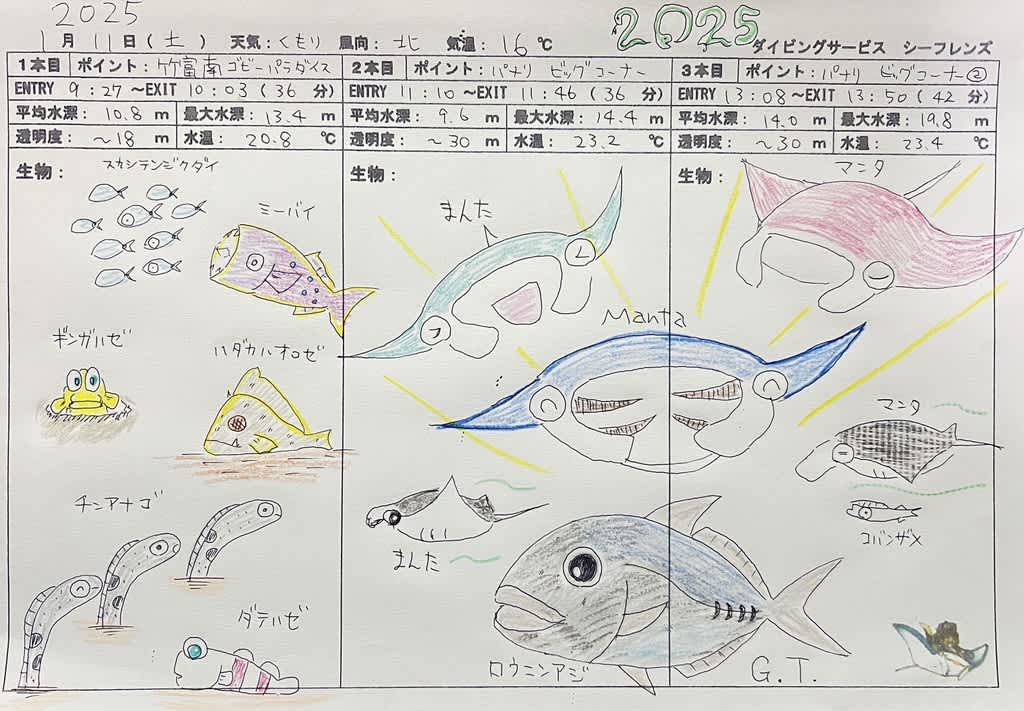 2025
2025
1月11日(土) 天気:くもり 風向:北 気温:16℃
ダイビングサービス シーフレンズ
1本目 ポイント:竹富南ゴビーパラダイス
ENTRY 9:27 ～EXIT 10:03 (36 分)
平均水深: 10.8 m 最大水深: 13.4 m
透明度: ～18 m 水温: 20.8 ℃
生物:
スカシテンジクダイ
ミーバイ
ギンガハゼ
ハダカハオコゼ
チンアナゴ
ダテハゼ
2本目 ポイント:パナリ ビッグコーナー
ENTRY 11:10 ～EXIT 11:46 (36 分)
平均水深: 9.6 m 最大水深: 14.4 m
透明度: ～30 m 水温: 23.2 ℃
生物:
まんた
Manta
まんた
ロウニンアジ
3本目 ポイント:パナリ ビッグコーナー②
ENTRY 13:08 ～EXIT 13:50 (42 分)
平均水深: 14.0 m 最大水深: 19.8 m
透明度: ～30 m 水温: 23.4 ℃
生物:
マンタ
マンタ
コバンザメ
G.T.